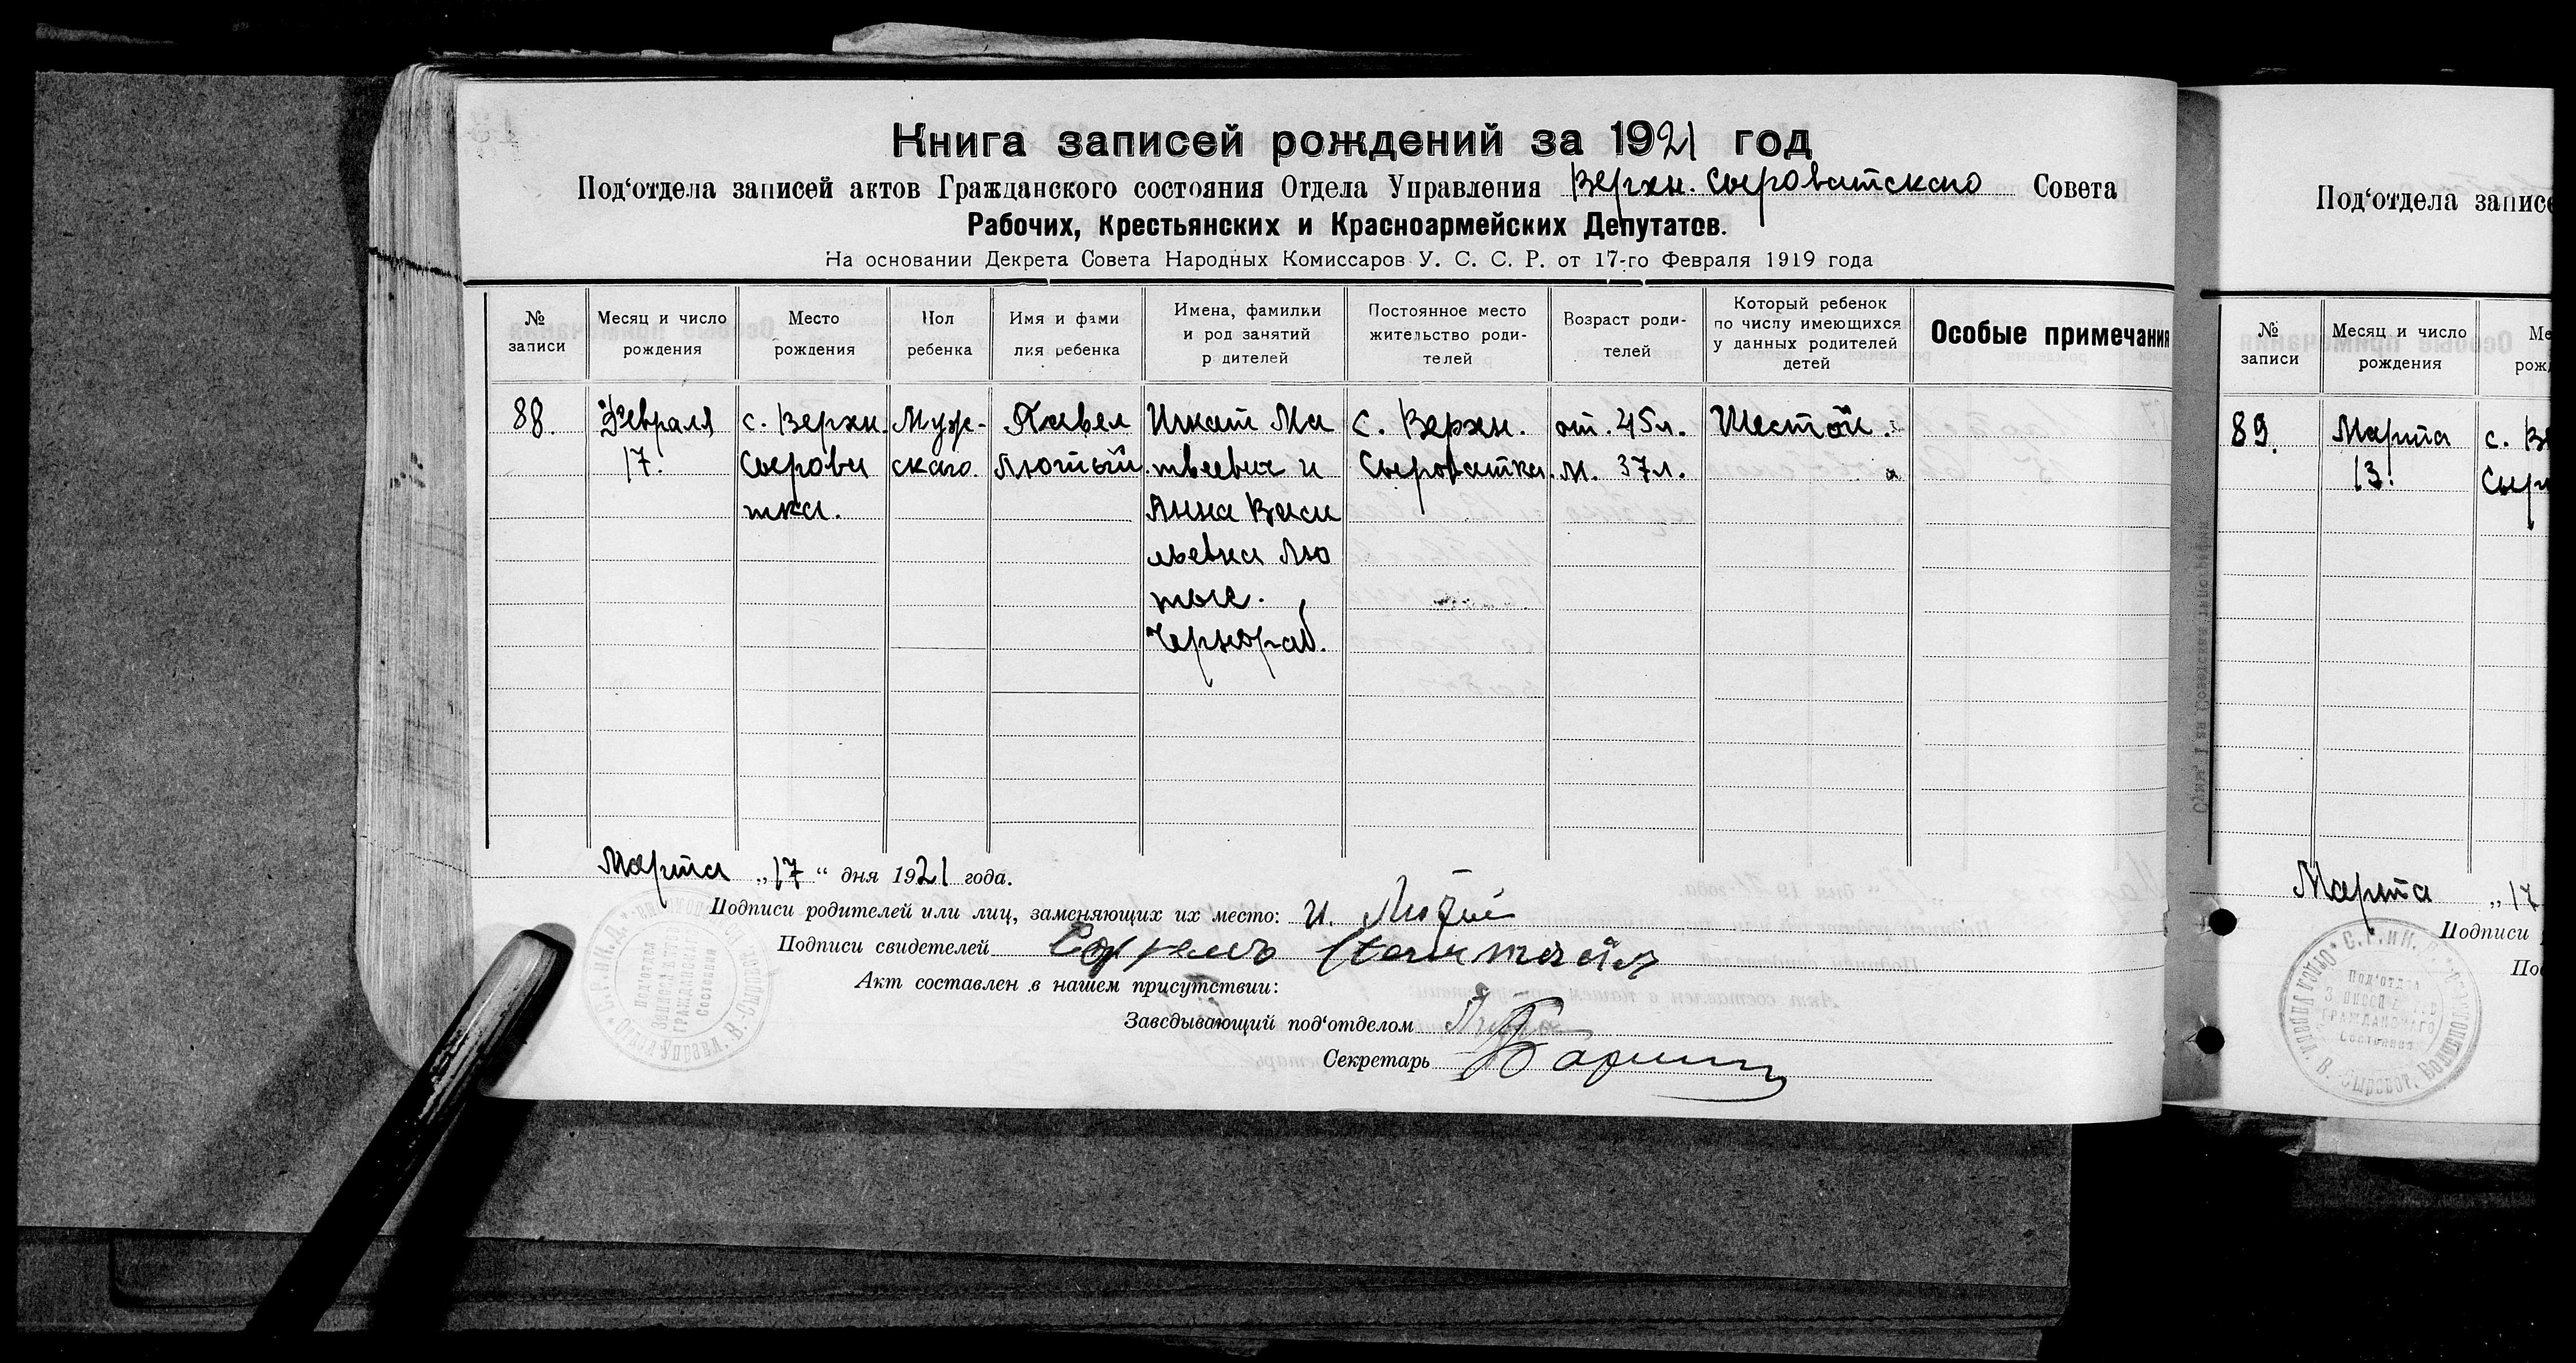 Книга записей рождений за 1921 год
Под‘отдела записей актов Гражданского состояния Отдела Управления Верхн. Сыроватскаго Совета
Рабочих, Крестьянских и Красноармейских Депутатов.
На основании Декрета Совета Народных Комиссаров У. С. С. Р. от 17-го Февраля 1919 года
№ записи
Месяц и число рождения
Место рождения
Пол ребенка
Имя и фами лия ребенка
Имена, фамилии и род занятий р дителей
Постоянное место жительство роди- телей
Возраст роди- телей
Который ребенок по числу имеющихся у данных родителей детей
Особые примечания
88. Февраля с. Верхн. Муж- Павел Игнат Ма с. Верхн. от. 45 л. Шестой.
17. Сырова скаго Лютый. твеевич и Сыроватка. М. 37 л.
тка. Анна Васи
льевна Лю
тые.
Чернораб.
Марта „17“ дня 1921 года.
Подписи родителей или лиц, заменяющих их место: И. Лютый
Подписи свидетелей
Акт составлен в нашем присутствии:
Заведывающий под‘отделом
Секретарь
Под‘отдела записе
№ записи
Месяц и число рождения
Ме рож
89. Марта с. Ве
13. Сыр
Марта „17
Подписи
По
Под‘отдел
Гражданскаго
Состояния